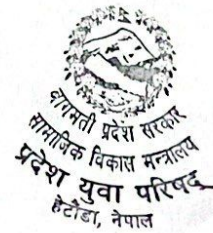 बागमती प्रदेश सरकार
सामाजिक विकास मन्त्रालय
प्रदेश युवा परिषद्
हेटौडा, नेपाल